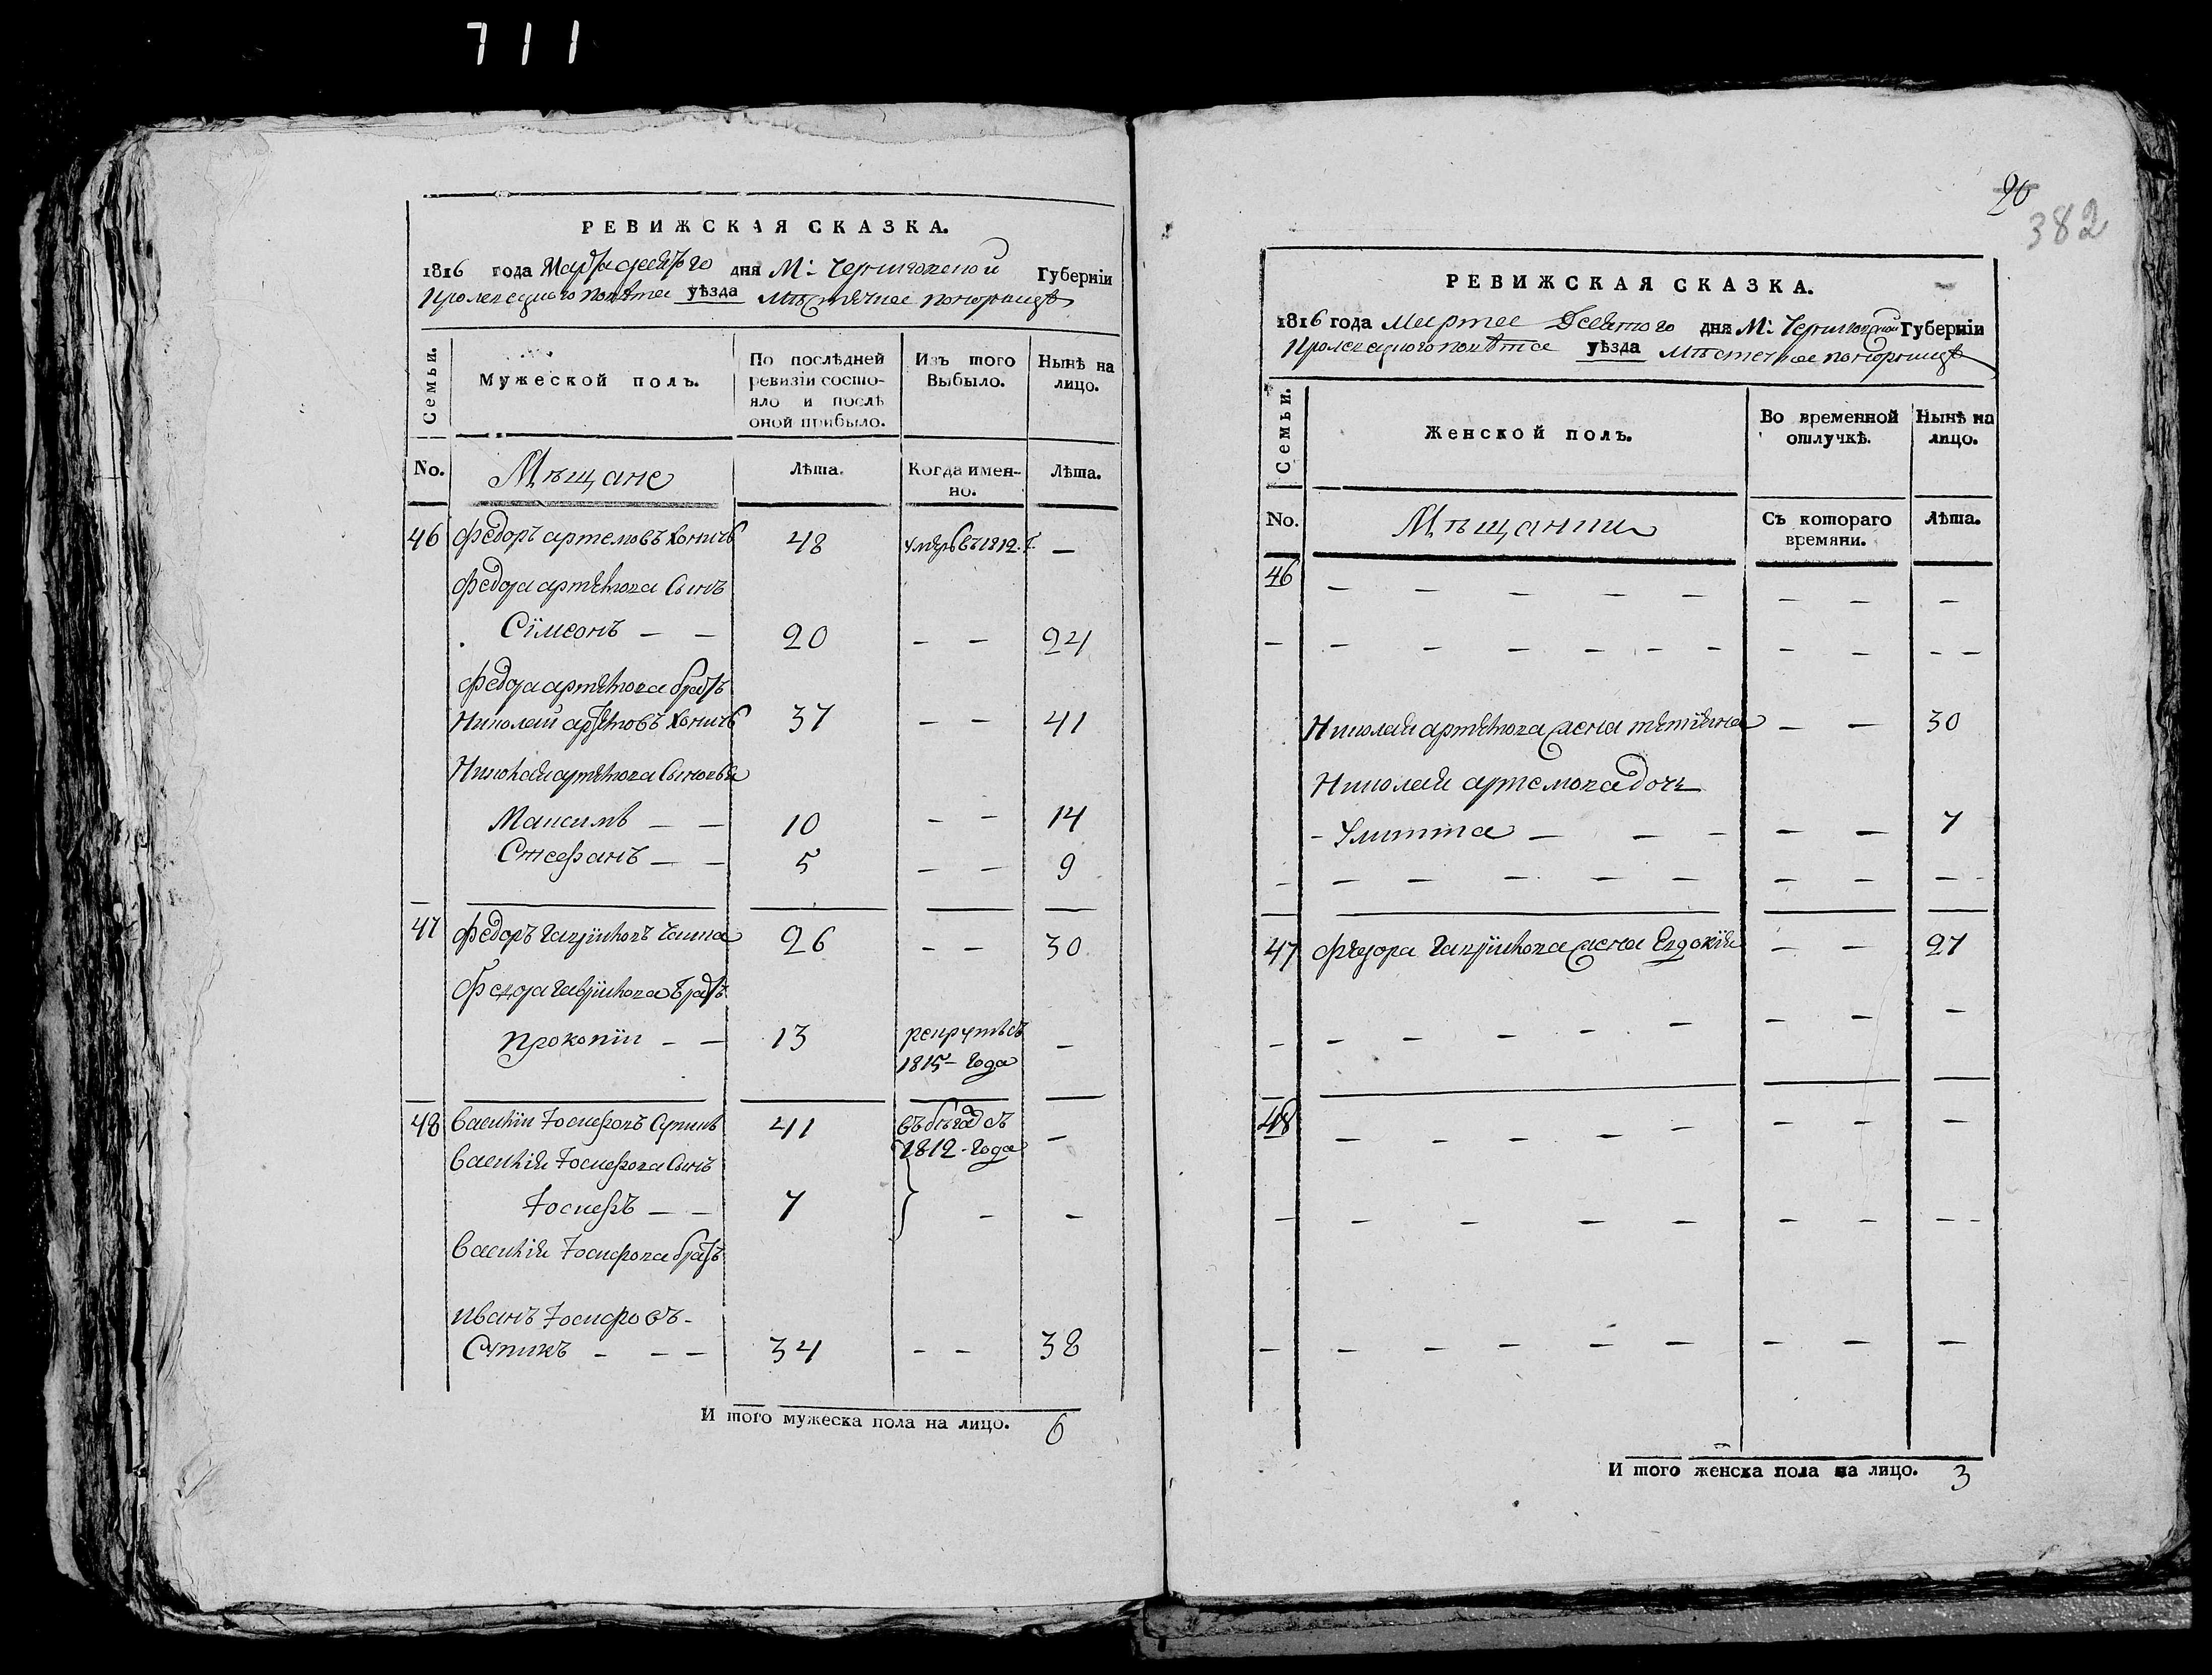 711
РЕВИЖСКАЯ СКАЗКА.
1816 года Марта десятого дня М: Черниговской Губерніи
уѣзда
Семьи.
Мужеской полъ.
По послѣдней ревизіи состояло и послѣ оной прибыло.
Изъ того Выбыло.
Нынѣ на лицо.
No.
Мѣщане
Лѣта.
Когда именно.
Лѣта.
46 Федоръ Артемовъ 48 умеръ въ 1812. г. —
Федора Артемова Сынъ
Сїмеонъ — — 20 — — 24
Федора Артемова братъ
Николай Артемовъ 37 — — 41
Николая Артемова Сыновья
Максимъ — — 10 — — 14
Стефанъ — — 5 — — 9
47 Федоръ Гаврїиловъ 26 — — 30
Федора Гаврїилова братъ
Прокопїи — — 13 рекрутъ съ —
1815 — года
48 Василїи Іосифовъ 41 въ бегах съ —
1812 - года
Василїя Іосифова Сынъ
Іосифъ — — 7 } — —
Василїя Іосифова братъ
Иванъ Іосифовъ -
- — — 34 — — 38
И того мужеска пола на лицо. 6
20
382
РЕВИЖСКАЯ СКАЗКА.
1816 года Марта Десятого дня М: Черниговской Губерніи
уѣзда
Семьи.
Женской полъ.
Во временной отлучкѣ.
Нынѣ на лицо.
No.
Мѣщанки
Съ котораго времяни.
Лѣта.
46 — — — — — — — —
Николая Артемова жена — — 30
Николая Артемова дочь
- Улитта — — — — — 7
47 Федора Гаврїилова жена Евдокїя — — 27
48 — — — — — — — —
И того женска пола на лицо. 3